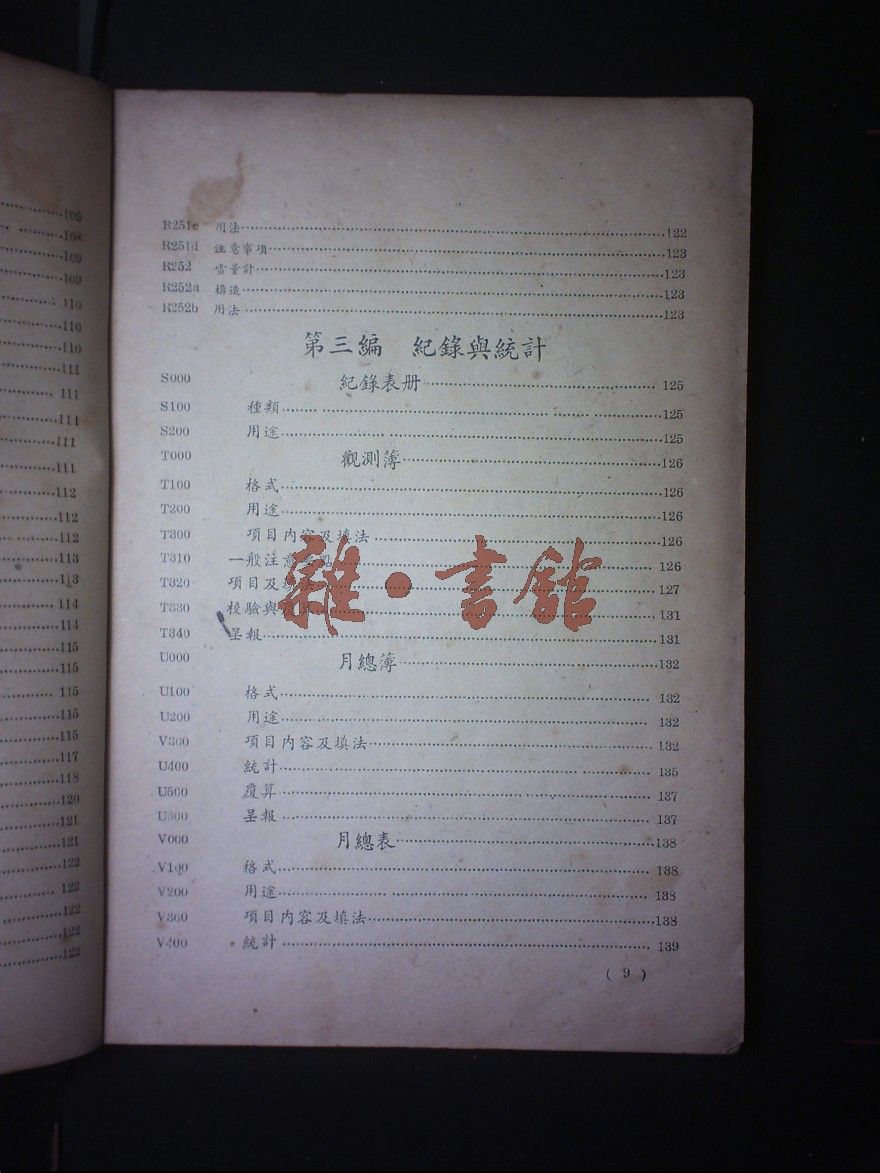 106
108
109
109
110
110
110
111
111
111
111
111
112
112
112
113
113
114
114
115
115
115
115
115
117
118
120
121
121
122
122
122
122
122
R251c 用法 122
R251d 注意事項 123
R252 雪量計 123
R252a 構造 123
R252b 用法 123
第三編 紀錄與統計
S000 紀錄表册 125
S100 種類 125
S200 用途 125
T000 觀測簿 126
T100 格式 126
T200 用途 126
T300 項目内容及填法 126
T310 一般注意要點 126
T320 項目及填法 127
T330 校驗與 131
T340 呈報 131
U000 月總簿 132
U100 格式 132
U200 用途 132
V300 項目内容及填法 132
U400 統計 135
U500 覆算 137
U600 呈報 137
V000 月總表 138
V100 格式 138
V200 用途 138
V300 項目内容及填法 138
V400 統計 139
( 9 )
雜·書館